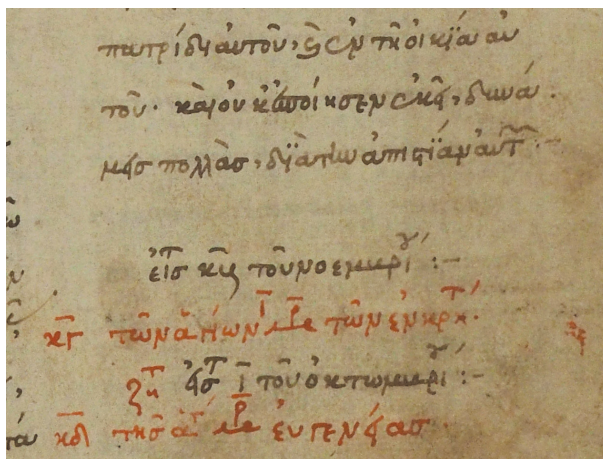 πατρίδι αὐτοῦ, καὶ ἐν τῆ οἰκΐα αὐ
τοῦ. καὶ οὐκ ἐποίησεν ἐκεῖ, δυνά
μεις πολλὰς, διὰ τὴν ἀπιστΐαν αὐτ :-
εἰς κζ τοῦ νοεμβρί :-
κγ τῶν ἁγίων τῶν ἐν κρητ.
ζτ εἰς ι τοῦ ὀκτωμβρί :-
κδ τῆς ἁγ εὐγενείας